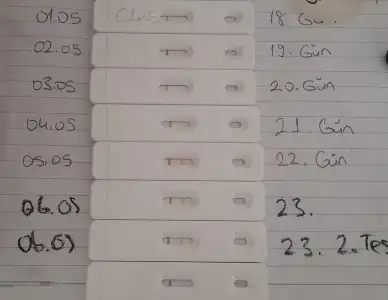 01.05 01.05 18 Gü.
02.05 19. Gün
03.05 20. Gün
04.05 21. Gün
05.05 22. Gün
06.05 23.
06.05 23. 2. Tes